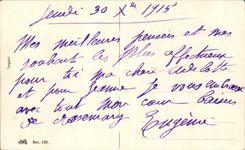 Jeudi 30 Xbre 1915
Mes meilleures pensées et mes
souhaits les plus affectueux
pour toi ma chère
et pour Jeanne je vous embrasse
avec tout mon cœur
de Rosemary
Eugénie
Ser. 136.